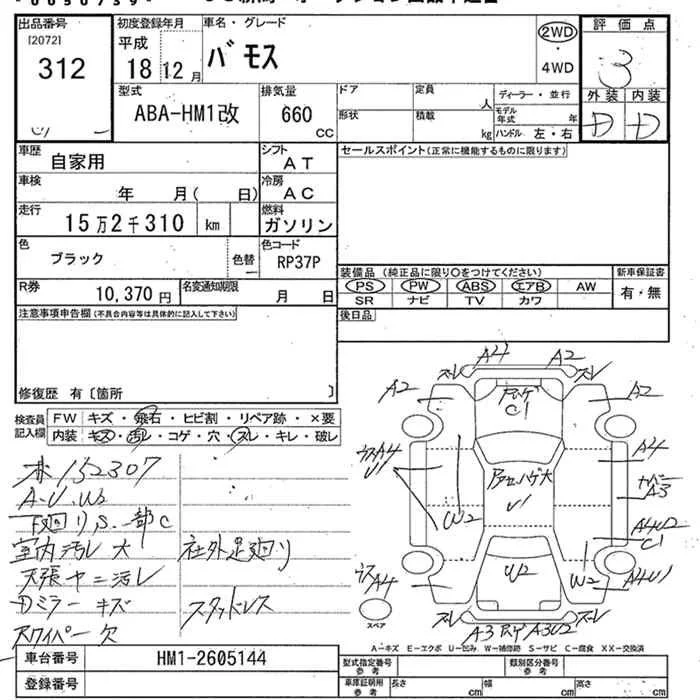 出品番号
[2072]
312
初度登録年月
平成
18 12 月
車名・グレード
バモス
2WD
・
4WD
評価点
3
外装 内装
D D
型式
ABA-HM1改
排気量
660
CC
ドア
定員
人
ディーラー・並行
形状
積載
kg
モデル年式 年
ハンドル 左・右
車歴
自家用
シフト
AT
セールスポイント(正常に機能するものに限ります)
車検
年 月( 日)
冷房
AC
走行
15万2千310 km
燃料
ガソリン
色
ブラック
色替
色コード
RP37P
装備品(純正品に限り○をつけてください)
PS PW ABS エアB AW
SR ナビ TV カワ
新車保証書
有・無
R券
10,370円
名変通知期限
月 日
後日品
注意事項申告欄(不具合内容等は具体的に記入して下さい)
修復歴 有〔箇所 〕
検査員記入欄
FW キズ・飛石・ヒビ割・リペア跡・×要
内装 キズ・汚レ・コゲ・穴・スレ・キレ・破レ
152307
A-U.W2
下廻りS.一部C
室内汚レ大
社外足廻り
天張ヤニ汚レ
Dミラーキズ
スタッドレス
Rワイパー欠
ズレ A4 A2 ズレ
A2
C1
A2
A4
U1
A4
A3
W2
U1
A4U2
C1
A4
W2
W2
A4U1
スペア
ズレ
A3
A3U2
ズレ
A-キズ E-エクボ U-凹み W-補修跡 S-サビ C-腐食 XX-交換済
車台番号
HM1-2605144
登録番号
型式指定番号
参考
類別区分番号
参考
車庫証明用
参考
長さ cm
幅 cm
高さ cm